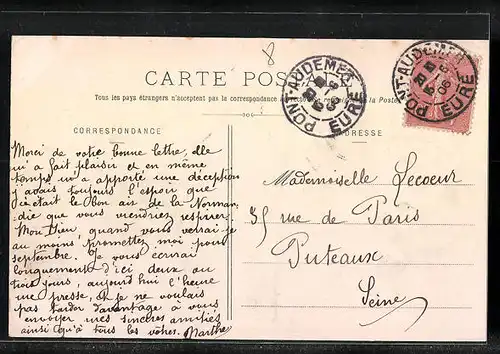 8
CARTE POSTALE
Tous les pays étrangers n'acceptent pas la correspondance au recto
la Poste
CORRESPONDANCE
ADRESSE
PONT-AUDEMER
EURE
PONT-AUDEMER
EURE
Merci de votre bonne lettre, elle
m'a fait plaisir et en même
temps m'a apporté une déception
j'avais toujours l'espoir que
c'était le bon air de la Norman
die que vous viendriez respirer.
Mon Dieu, quand vous verrai je
au moins promettez moi pour
septembre. Je vous écrirai
longuement d'ici deux ou
trois jours, aujourd'hui l'heure
me presse, et je ne voulais
pas tarder davantage à vous
envoyer mes sincères amitiés
ainsi qu'à tous les vôtres. Marthe
Mademoiselle Lecoeur
rue de Paris
Puteaux
Seine